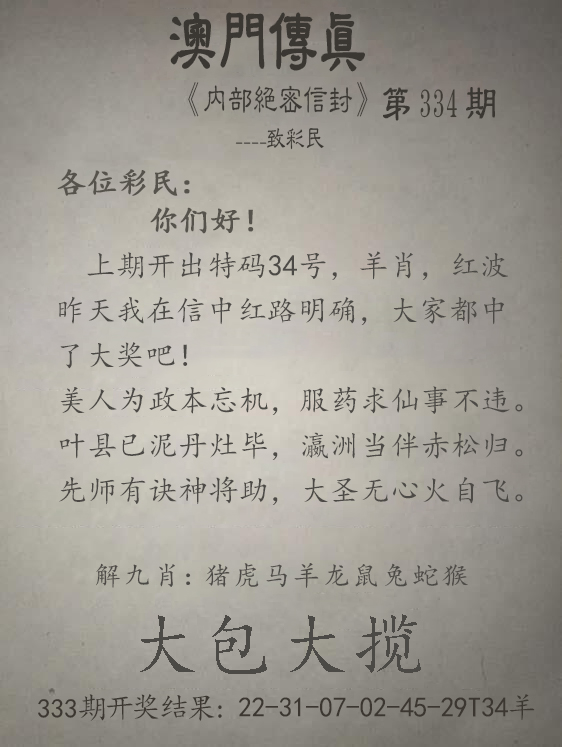 澳門傳眞
《内部絕密信封》第334期
----致彩民
各位彩民：
你们好！
上期开出特码34号，羊肖，红波
昨天我在信中红路明确，大家都中
了大奖吧！
美人为政本忘机，服药求仙事不违。
叶县已泥丹灶毕，瀛洲当伴赤松归。
先师有诀神将助，大圣无心火自飞。
解九肖：猪虎马羊龙鼠兔蛇猴
大包大揽
333期开奖结果：22-31-07-02-45-29T34羊